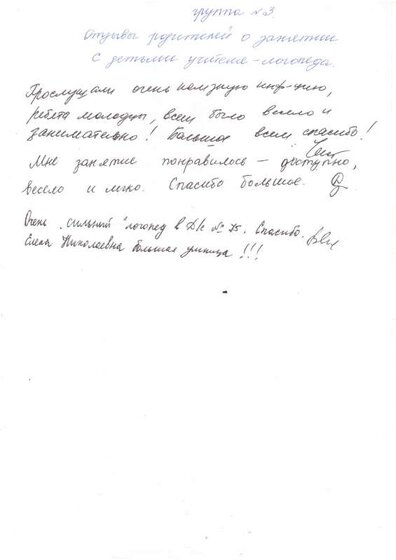 группа №3.
Отзывы родителей о занятии
с детьми учителя-логопеда.
Прослушали очень полезную инф-цию,
ребята молодцы, всем было весело и
занимательно! Большое всем спасибо!
Мне занятие понравилось – доступно,
весело и легко. Спасибо большое.
Очень сильный логопед в д/с № 75. Спасибо.
Елена Николаевна большая умница!!!